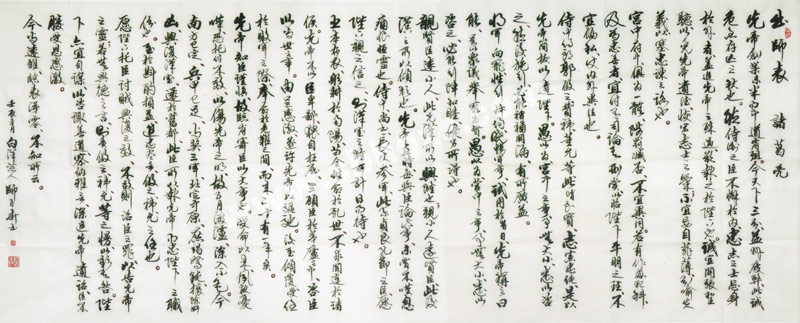 出師表 諸葛亮
先帝創業未半而中道崩殂今天下三分益州疲弊此誠
危急存亡之秋也然侍衛之臣不懈於內忠志之士忘身
於外者蓋追先帝之殊遇欲報之於陛下也誠宜開張聖
聽以光先帝遺德恢宏志士之氣不宜妄自菲薄引喻失
義以塞忠諫之路也
宮中府中俱為一體陟罰臧否不宜異同若有作姦犯科
及為忠善者宜付有司論其刑賞以昭陛下平明之理不
宜偏私使內外異法也
侍中侍郎郭攸之費禕董允等此皆良實志慮忠純是以
先帝簡拔以遺陛下愚以為宮中之事無大小悉以咨
之然後施行必能裨補闕漏有所廣益
將軍向寵性行淑均曉暢軍事試用於昔日先帝稱之曰
能是以眾議舉寵為督愚以為營中之事無大小悉以
咨之必能使行陣和睦優劣得所也
親賢臣遠小人此先漢所以興隆也親小人遠賢臣此後
漢所以傾頹也先帝在時每與臣論此事未嘗不嘆息
痛恨於桓靈也侍中尚書長史參軍此悉貞良死節之臣願
陛下親之信之則漢室之隆可計日而待也
臣本布衣躬耕於南陽苟全性命於亂世不求聞達於諸
侯先帝不以臣卑鄙猥自枉屈三顧臣於草廬之中咨臣
以當世之事由是感激遂許先帝以驅馳後值傾覆受任
於敗軍之際奉命於危難之間爾來二十有一年矣
先帝知臣謹慎故臨崩寄臣以大事也受命以來夙夜憂
嘆恐託付不效以傷先帝之明故五月渡瀘深入不毛今
南方已定兵甲已足當獎率三軍北定中原庶竭駑鈍攘除姦
凶興復漢室還於舊都此臣所以報先帝而忠陛下之職
分也至於斟酌損益進盡忠言則攸之禕允之任也
願陛下託臣以討賊興復之效不效則治臣之罪以告先帝
之靈若無興德之言則責攸之禕允等之慢以彰其咎陛
下亦宜自課以咨諏善道察納雅言深追先帝遺詔臣不
勝受恩感激
今當遠離臨表涕零不知所云